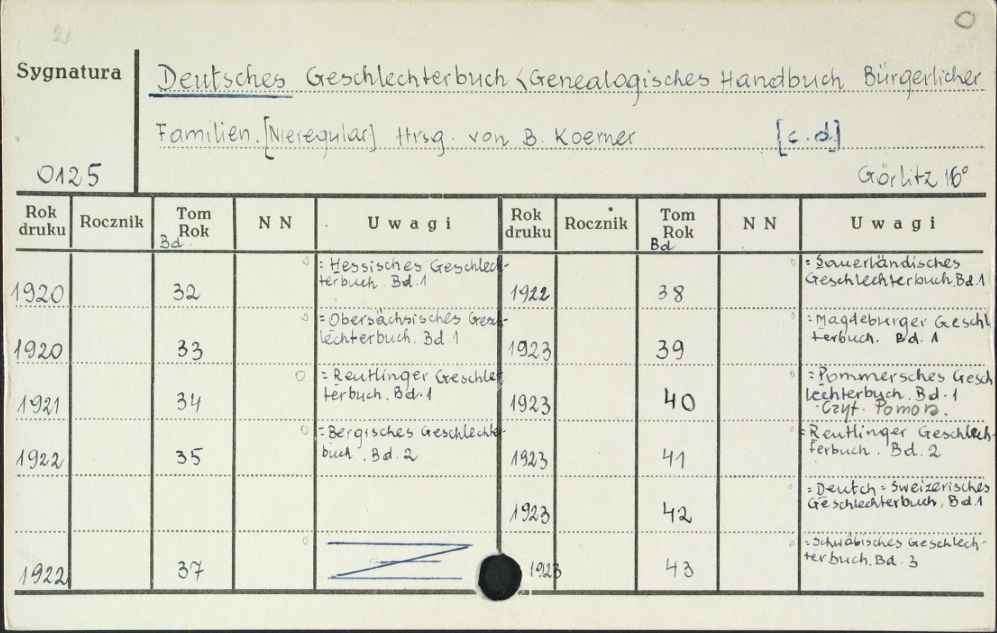 Sygnatura
Deutsches Geschlechterbuch <Genealogisches Handbuch Bürgerlicher
Familien. [Nieregular] Hrsg. von B. Koerner [c.d.]
0125
Görlitz 16°
Rok druku Rocznik Tom Rok Bd. N N Uwagi Rok druku Rocznik Tom Rok Bd N N Uwagi
1920 32 = Hessisches Geschlech-
terbuch. Bd. 1
1922 38 = Sauerländisches
Geschlechterbuch, Bd. 1
1920 33 = Obersächsisches Gesch-
lechterbuch. Bd. 1
1923 39 = Magdeburger Geschl
terbuch. Bd. 1
1921 34 = Reutlinger Geschlech
terbuch. Bd. 1
1923 40 = Pommersches Gesch
lechterbuch. Bd. 1
Czyt. Pomorz.
1922 35 = Bergisches Geschlechter-
buch. Bd. 2
1923 41 = Reutlinger Geschlech-
terbuch. Bd. 2
1923 42 = Deutch = Sweizerisches
Geschlechterbuch, Bd. 1
1922 37
1923 43 = Schwäbisches Geschlech-
terbuch. Bd. 3